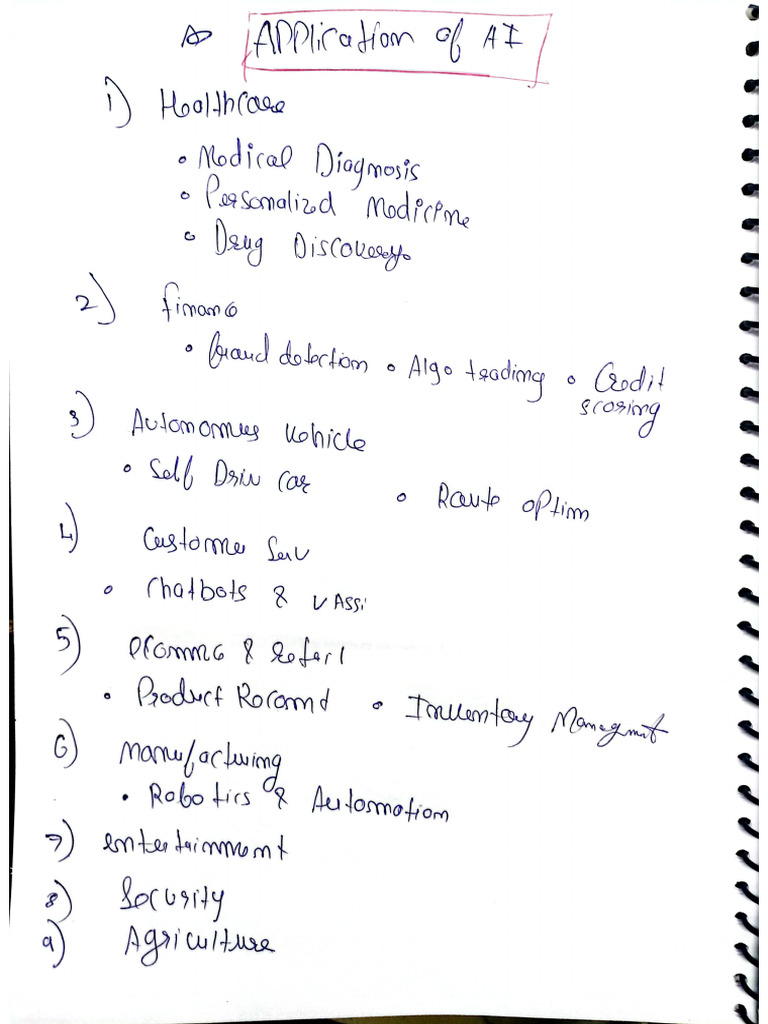 Application of AI
1) Healthcare
• Medical Diagnosis
• Personalized Medicine
• Drug Discovery
2) Financ
• fraud detection • Algo trading • Credit scoring
3) Autonomus Vehicle
• Self Driv Car • Route optim
4) Custome Serv
• Chatbots & V Assi
5) ecommc & Retail
• Product Recomd • Inventory Managmnt
6) Manufacturing
• Robotics & Automation
7) entertainment
8) Security
9) Agriculture